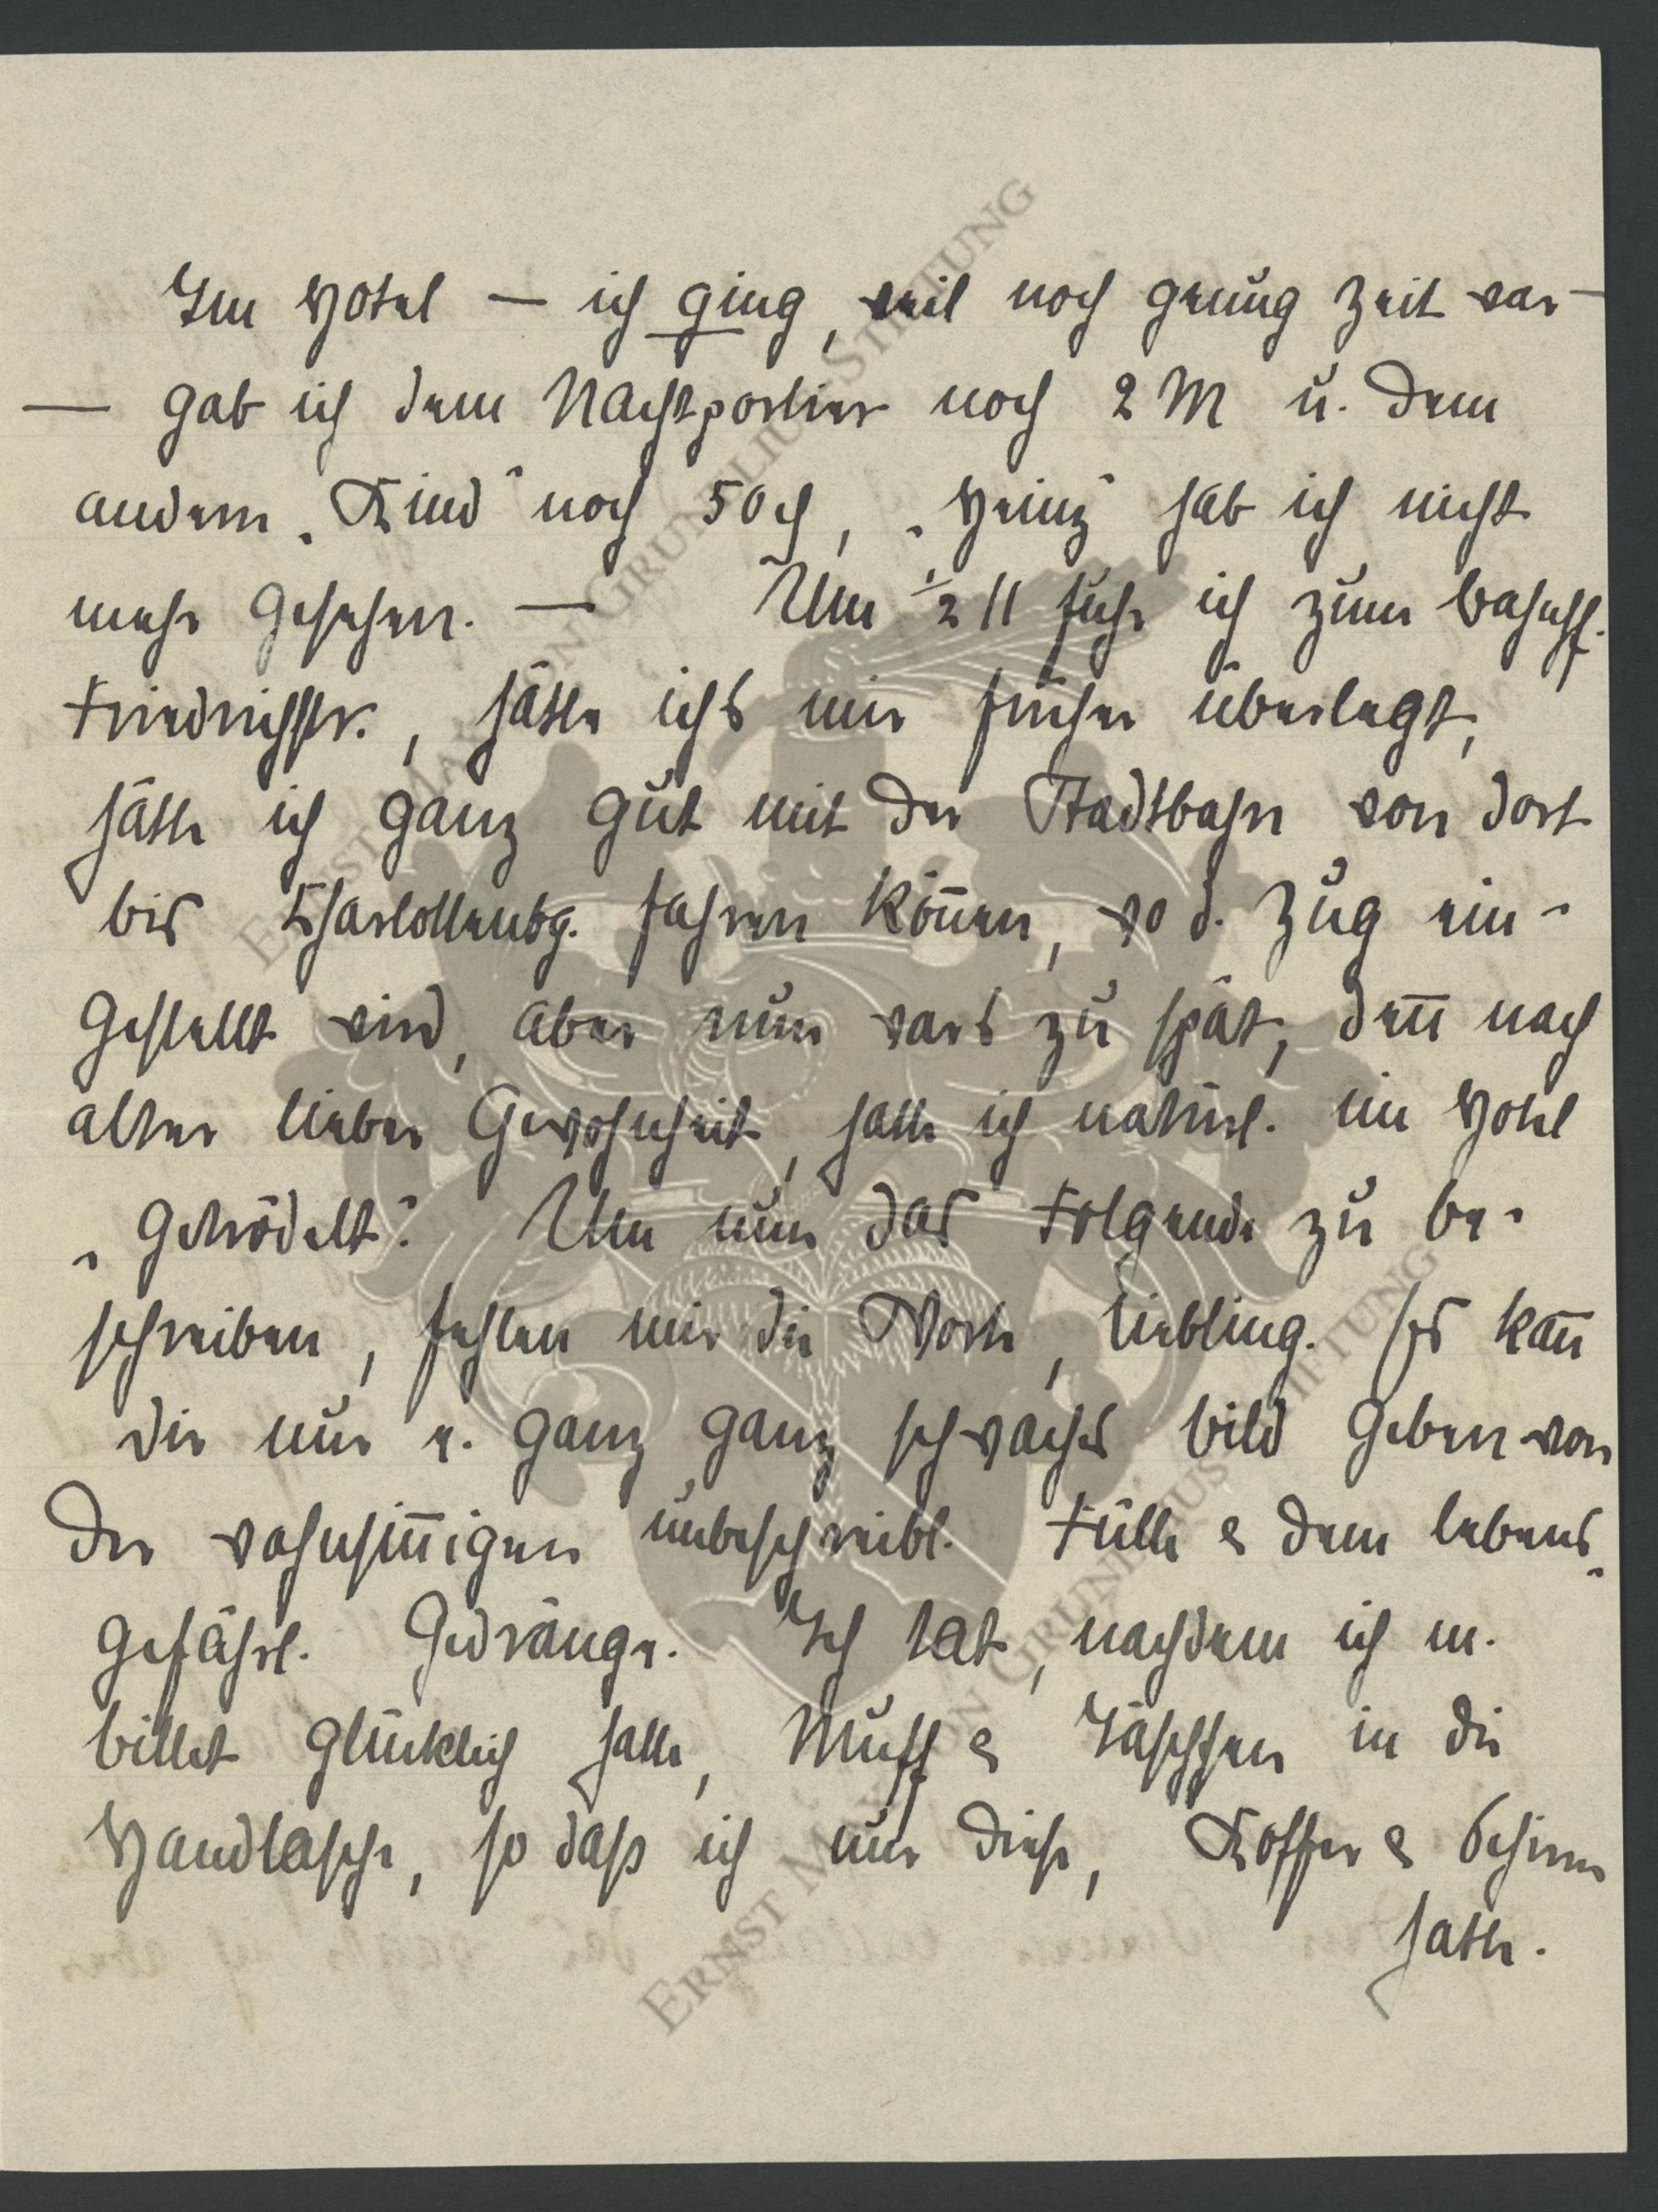 Im Hotel — ich ging, weil noch genug Zeit war —
— gab ich dem Nachtportier noch 2 M u. dem
andern „Kind“ noch 50 ₰, „Heinz“ hab ich nicht
mehr gesehen. — Um ½ 11 fuhr ich zum Bahnhf.
Friedrichstr., hätte ichs mir früher überlegt,
hätte ich ganz gut mit der Stadtbahn von dort
bis Charlottenbg. fahren könn̄en, wo d. Zug ein-
gestellt wird, aber nun wars zu spät, den̄ nach
alter lieber Gewohnheit, hatte ich natürl. im Hotel
„getrödelt“. Um nun das Folgende zu be-
schreiben, fehlen mir die Worte, Liebling. Ich kan̄
dir nur e. ganz ganz schwaches Bild geben von
der wahnsin̄igen unbeschreibl. Fülle & dem lebens-
gefährl. Gedränge. Ich tat, nachdem ich m.
Billet glücklich hatte, Muff & Täschchen in die
Handtasche, so daß ich nur diese, Koffer & Schirm
hatte.
ERNST MAX VON GRUNELIUS STIFTUNG
ERNST MAX VON GRUNELIUS STIFTUNG